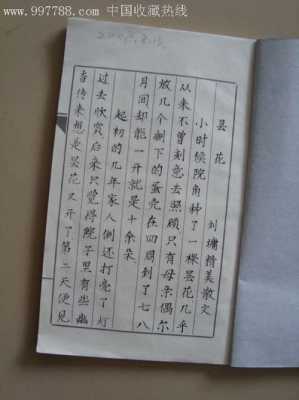 www.997788.com 中国收藏热线
昙花
刘墉精美散文
小时候院角种了一棵昙花几乎
从来不曾刻意去照顾只有母亲偶尔
放几个剩下的蛋壳在四周到了七八
月间却能一开就是十余朵
起初的几年家人倒还打亮了灯
过去欣赏后来只觉得院子里有些幽
香传来想是昙花又开了第二天便见